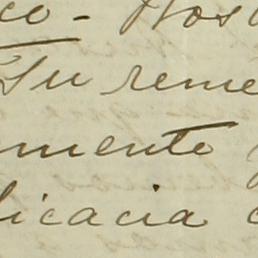 co - Nos
Su reme
mente
licacia c